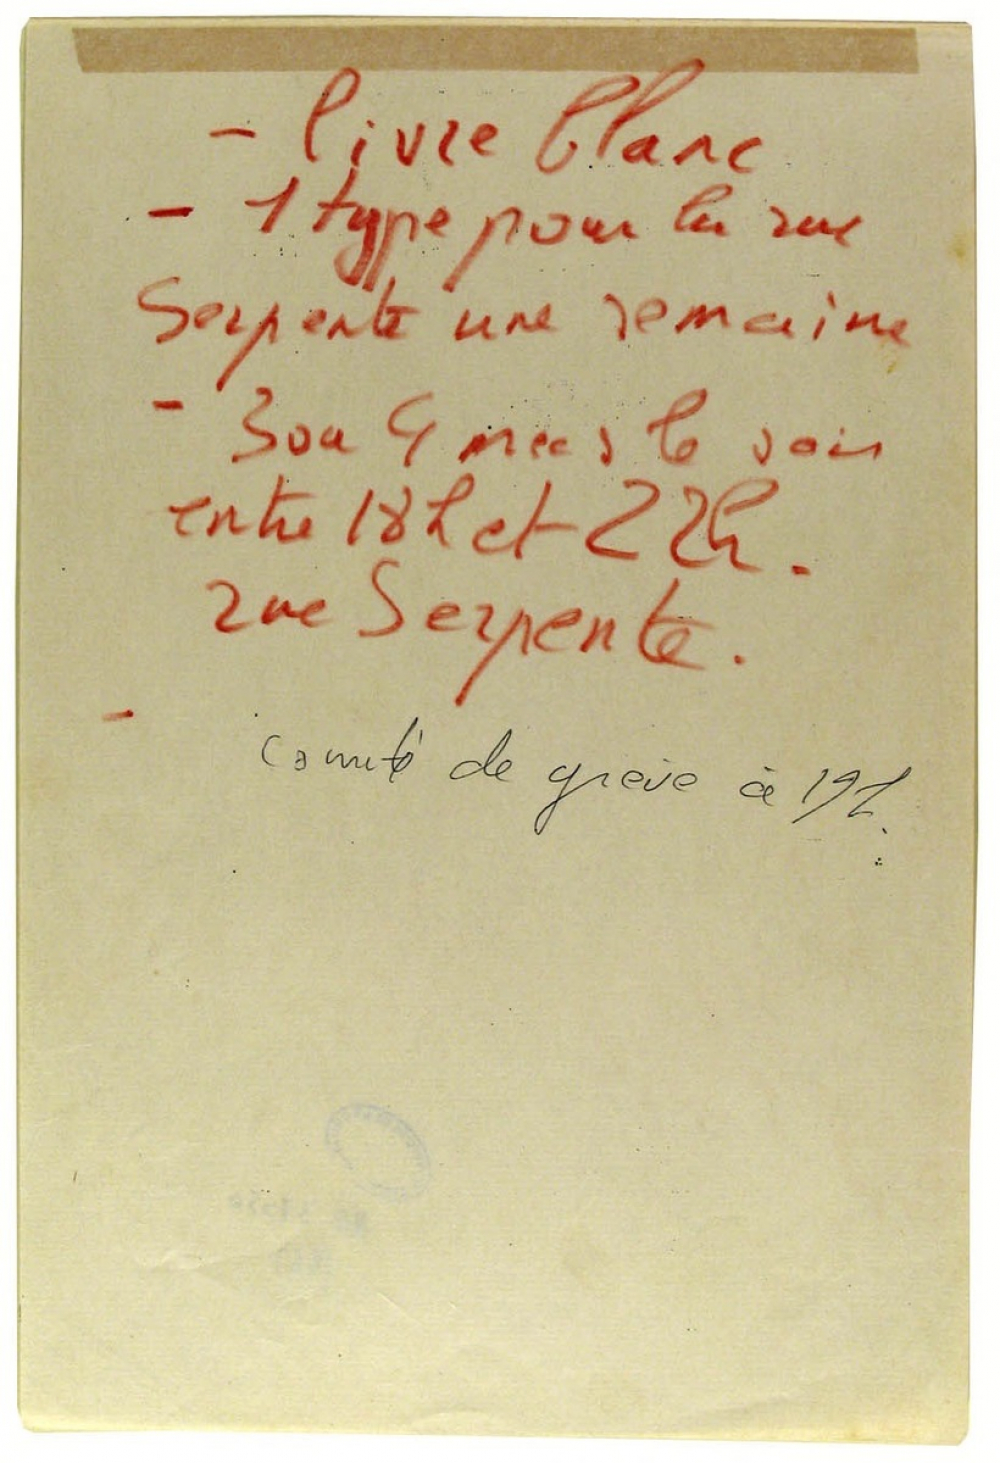 - livre blanc
- 1 type pour la rue
Serpente une semaine
- 3 ou 4 mecs le soir
entre 18h et 22h.
rue Serpente.
-
comité de grève à 19h.